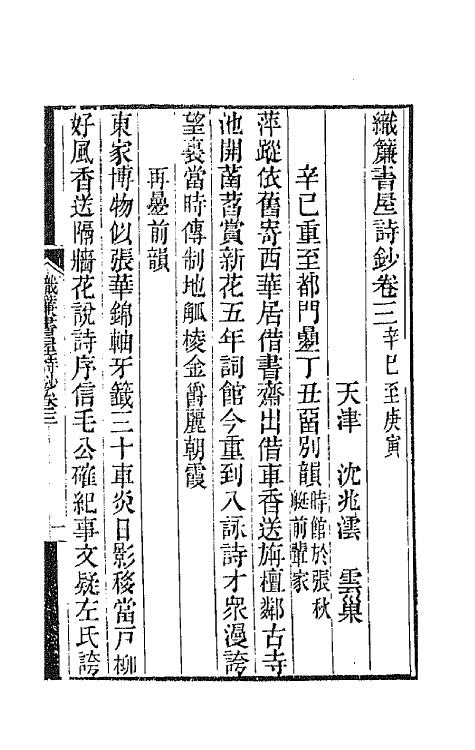 織簾書屋詩鈔卷三辛巳至庚寅
天津　沈兆澐　雲巢
辛巳重至都門疊丁丑留別韻時館於張秋艇前輩家
萍蹤依舊寄西華居借書齋出借車香送旃檀鄰古寺
池開菡萏賞新花五年詞館今重到入詠詩才衆漫誇
望裏當時傳制地觚棱金爵麗朝霞
再疊前韻
東家博物似張華錦軸牙籤三十車炎日影移當戸柳
好風香送隔牆花說詩序信毛公確紀事文疑左氏誇
織簾書屋詩鈔卷三
一